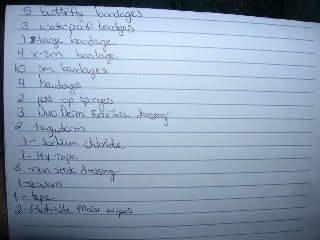 5 butterfly bandages
3 waterproof bandages
1 x-large bandage
4 x-sm bandage
10 sm bandages
4 bandages
2 post-op sponges
3 DuoDerm Extra thin dressing
2 tegaderm
1- Sodium chloride
1- Hy-Tape
3- non stick dressing
1- scissors
1- tape
2- wipes